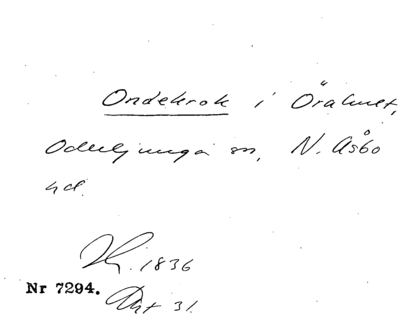 Ondekrok i Öraholmet,
Oderljunga sn, N. Åsbo
hd.
Hj. 1836
Nr 7294.
Art 31.